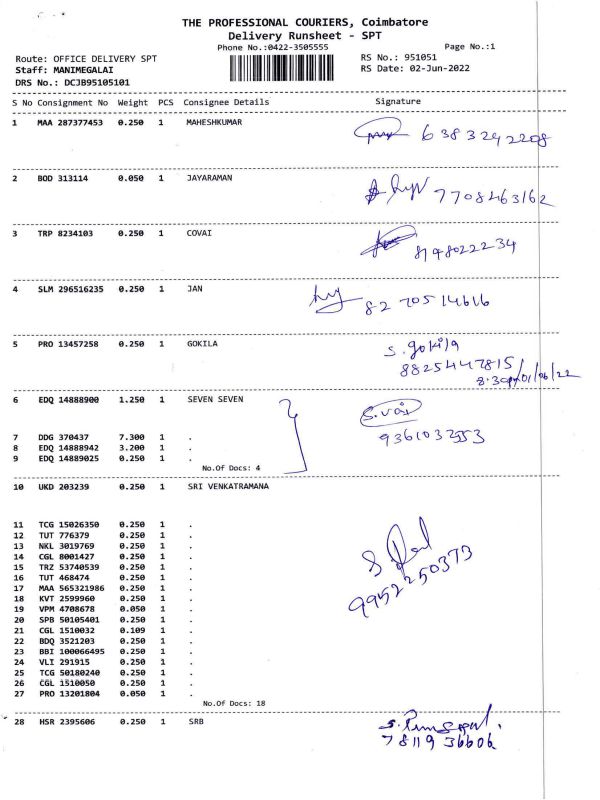 THE PROFESSIONAL COURIERS, Coimbatore
Delivery Runsheet - SPT
Phone No.:0422-3505555
Page No.:1
Route: OFFICE DELIVERY SPT
RS No.: 951051
Staff: MANIMEGALAI
RS Date: 02-Jun-2022
DRS No.: DCJB95105101
S No Consignment No Weight PCS Consignee Details Signature
1 MAA 287377453 0.250 1 MAHESHKUMAR
6383242208
2 BOD 313114 0.050 1 JAYARAMAN
7708463162
3 TRP 8234103 0.250 1 COVAI
8148022234
4 SLM 296516235 0.250 1 JAN
8270514616
5 PRO 13457258 0.250 1 GOKILA
S. gokila
8825447815
8.30pm 01/06/22
6 EDQ 14888900 1.250 1 SEVEN SEVEN
9361032553
7 DDG 370437 7.300 1 .
8 EDQ 14888942 3.200 1 .
9 EDQ 14889025 0.250 1 .
No.Of Docs: 4
10 UKD 203239 0.250 1 SRI VENKATRAMANA
11 TCG 15026350 0.250 1 .
12 TUT 776379 0.250 1 .
13 NKL 3019769 0.250 1 .
14 CGL 8001427 0.250 1 .
15 TRZ 53740539 0.250 1 .
16 TUT 468474 0.250 1 .
17 MAA 565321986 0.250 1 .
18 KVT 2599960 0.250 1 .
19 VPM 4708678 0.050 1 .
20 SPB 50105401 0.250 1 .
21 CGL 1510032 0.109 1 .
22 BDQ 3521203 0.250 1 .
23 BBI 100066495 0.250 1 .
24 VLI 291915 0.250 1 .
25 TCG 50180240 0.250 1 .
26 CGL 1510050 0.250 1 .
27 PRO 13201804 0.050 1 .
9952250373
No.Of Docs: 18
28 HSR 2395606 0.250 1 SRB
7811936606